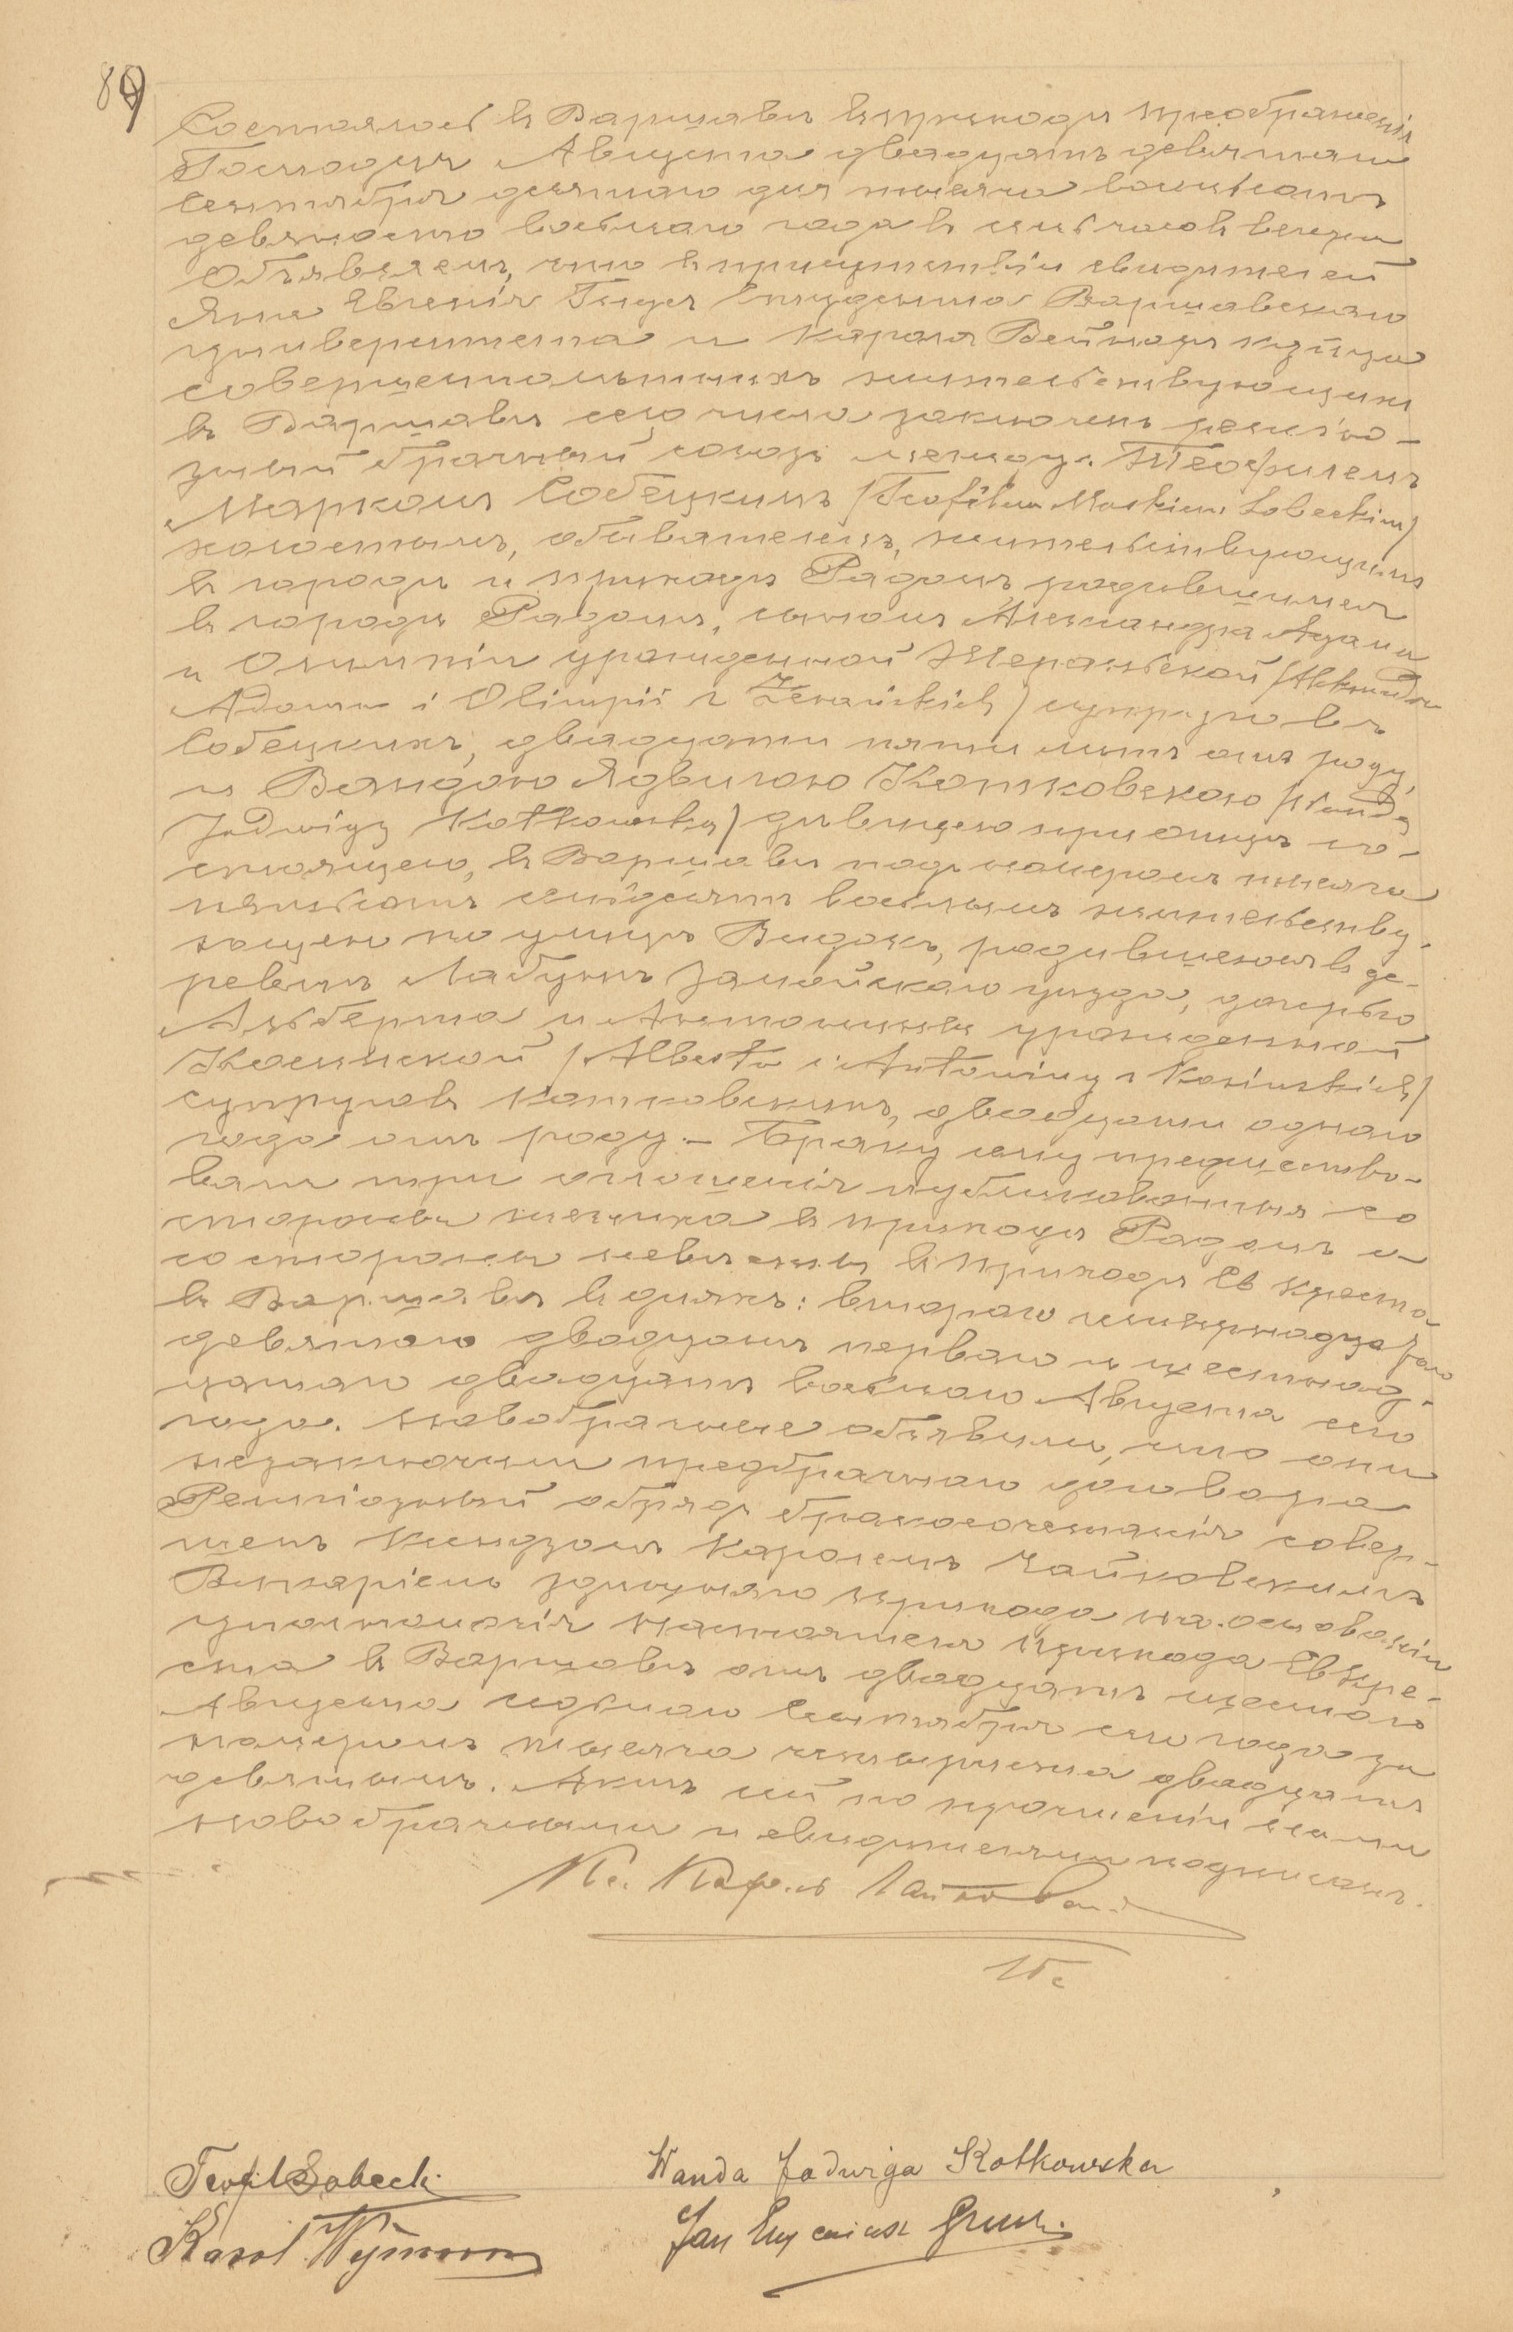 89
Состоялось въ Варшавѣ въ приходѣ Преображенія
Господня Августа двадцать девятаго
Сентября десятаго дня тысяча восемьсотъ
девяносто восьмаго года въ семь часовъ вечера
Объявляемъ, что въ присутствіи свидѣтелей
Яна Евгенія студента Варшавскаго
университета и Кароля
совершеннолѣтнихъ жительствующихъ
въ Варшавѣ сего числа заключенъ религіо-
зный брачный союзъ между: Теофилемъ
Маркомъ Собецкимъ /Teofilem Markiem Sobeckim/
холостымъ, обывателемъ, жительствующимъ
въ городѣ и приходѣ Радомъ родившимся
въ городѣ Радомъ, сыномъ Александра Адама
и Олимпіи урожденной Жераньской /Aleksandra
Adama i Olimpii z Żerańskich/ супруговъ
Собецкихъ, двадцати пяти лѣтъ отъ роду,
и Вандою Ядвигою Котковскою /Wandą
Jadwigą Kotkowską/ дѣвицею при отцѣ со-
стоящею, въ Варшавѣ подъ номеромъ тысяча
пятьсотъ семьдесятъ восьмымъ жительству-
ющею по улицѣ Видокъ, родившеюся въ де-
ревнѣ Лабунь Замойскаго уѣзда, дочерью
Альберта и Антонины урожденной
Косинской /Alberta i Antoniny z Kosińskich/
супруговъ Котковскихъ, двадцати одного
года отъ роду. – Браку сему предшество-
вали три оглашенія публикованныя со
стороны жениха въ приходѣ Радомъ и
со стороны невѣсты въ приходѣ Св Креста
въ Варшавѣ въ дняхъ: второго четырнадцатаго
девятаго двадцать перваго и шестнад-
цатаго двадцать восьмаго Августа сего
года. Новобрачные объявили, что они
незаключили предбрачнаго договора
Религіозный обрядъ бракосочетанія совер-
шенъ Ксендзомъ Каролемъ Чайковскимъ
Викаріемъ здѣшняго прихода на основаніи
уполномочія Настоятеля прихода Св Кре-
ста въ Варшавѣ отъ двадцать шестаго
Августа седьмаго Сентября сего года за
номеромъ тысяча четыреста двадцать
девятымъ. Актъ сей по прочтеніи нами
новобрачными и свидѣтелями подписанъ.
Кс. Кароль Чайковскі
Teofil Sobecki
Wanda Jadwiga Kotkowska
Karol
Jan Eugeniusz